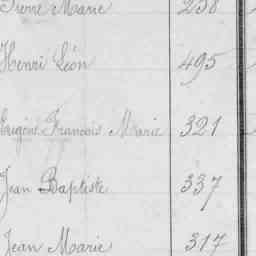 Pierre Marie 238
Henri Léon 495
Eugène François Marie 321
Jean Baptiste 337
Jean Marie 317